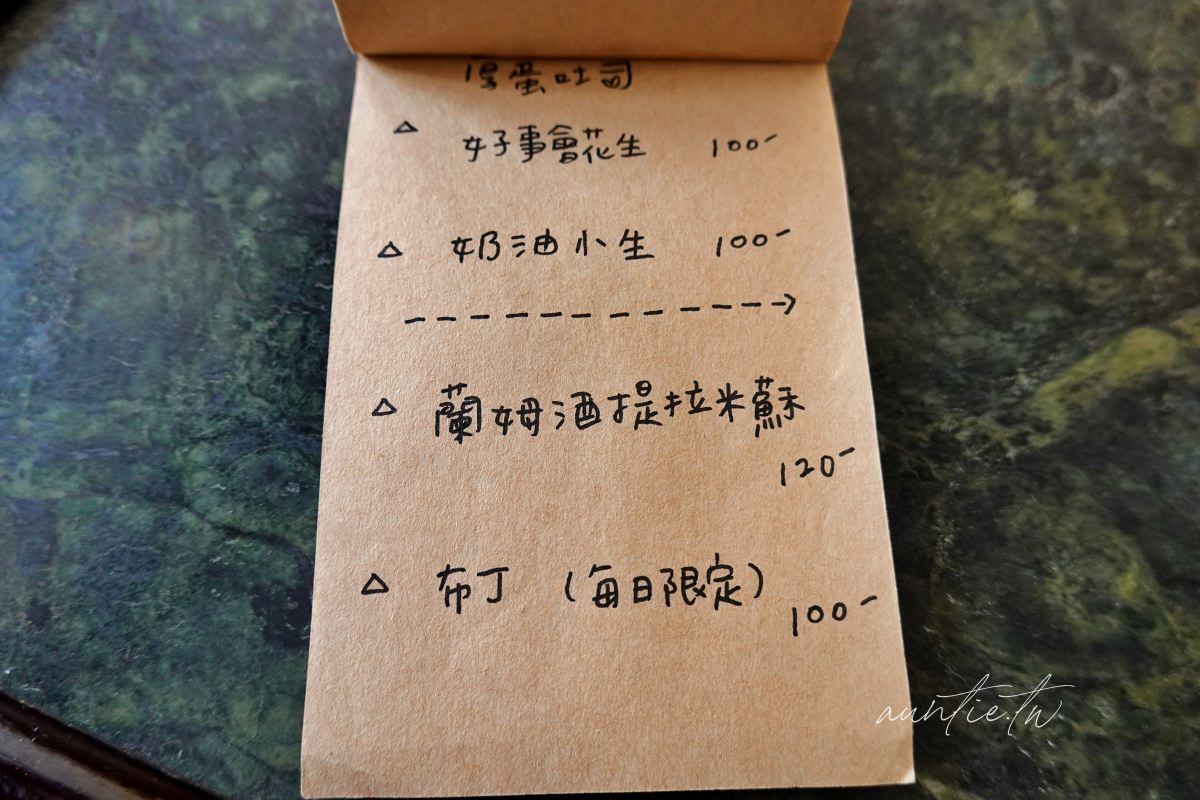 厚蛋吐司
△ 好事會花生 100-
△ 奶油小生 100-
△ 蘭姆酒提拉米蘇
120-
△ 布丁 (每日限定)
100-
auntie.tw